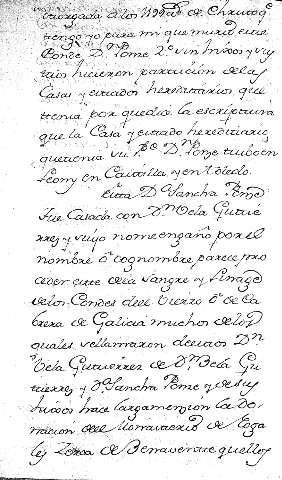 tengo yo para mi que murio este
Conde Dn Pome sin hijos y sus
hicieron particion de las
Casas y estados hereditarios que
tenia por que dio la escriptura
que la Casa y estado hereditario
que tenia su Dn Pome tubo en
Leon y en Castilla y en Toledo.
esta Da Sancha Pome
fue Casada con Dn Vela Gutie
rrez y si yo no me engaño por el
nombre o cognombre parece pro
ceder este de la Sangre y linage
de los Condes del Vierzo o de Ca
brera de Galicia muchos de los
quales se llamaron Dn
Vela Gutierrez de Dn Vela Gu
tierrez y Da Sancha Pome y de sus
hijos hace larga mencion la do
nacion del de
de Benavente que ellos